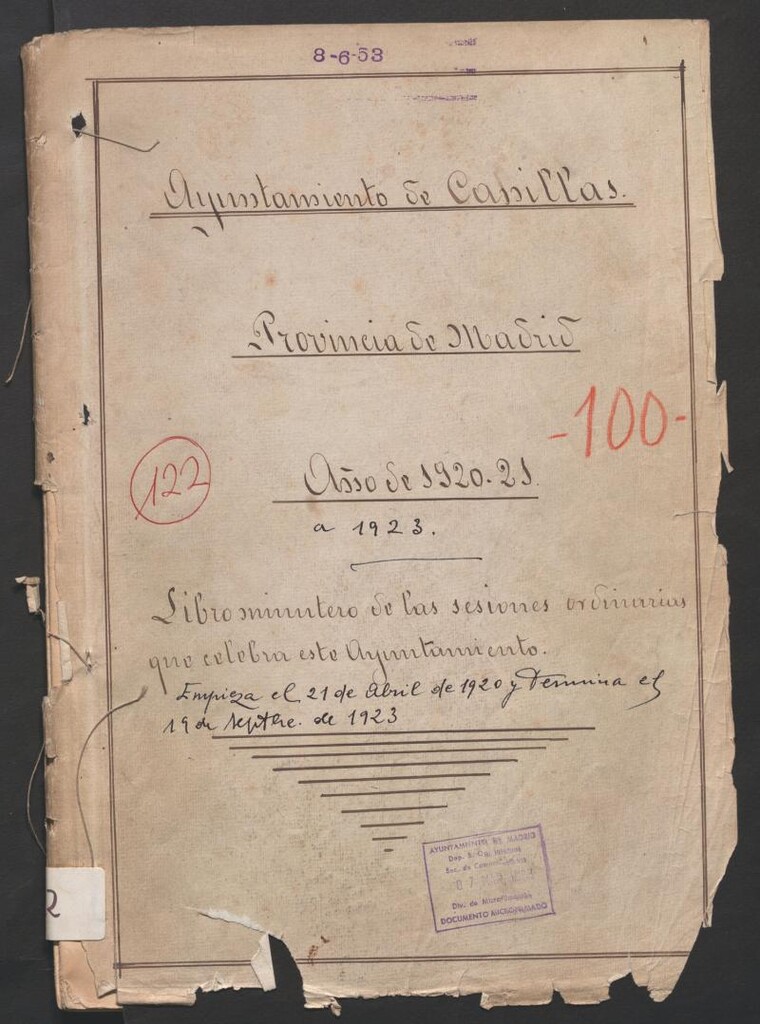 8-6-53
Ayunstamiento de Casillas.
Provincia de Madrid
-100-
122
Año de 1920-21.
a 1923.
Libro minutero de las sesiones ordinarias
que celebra este Ayuntamiento.
Empieza el 21 de Abril de 1920 y Termina el
19 de Septbre. de 1923
AYUNTAMIENTO DE MADRID
Div. de Microfilmación
DOCUMENTO MICROFILMADO
2